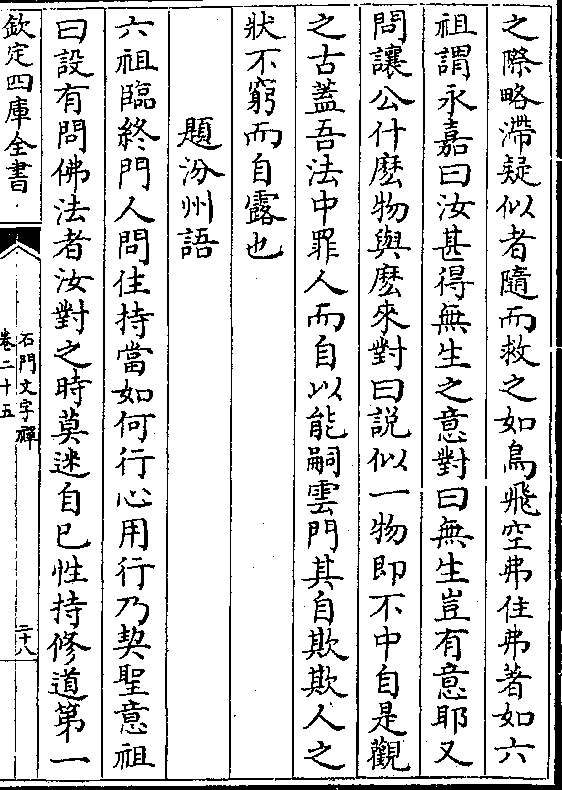 之際略滯疑似者隨而救之如鳥飛空弗住弗著如六
祖謂永嘉曰汝甚得無生之意對曰無生豈有意耶又
問讓公什麽物與麽來對曰説似一物即不中自是觀
之古蓋吾法中罪人而自以能嗣雲門其自欺欺人之
狀不窮而自露也
題汾州語
六祖臨終門人問住持當如何行心用行乃契聖意祖
曰設有問佛法者汝對之時莫迷自已性持修道第一
欽定四庫全書
石門文字禪
卷二十五
二十八